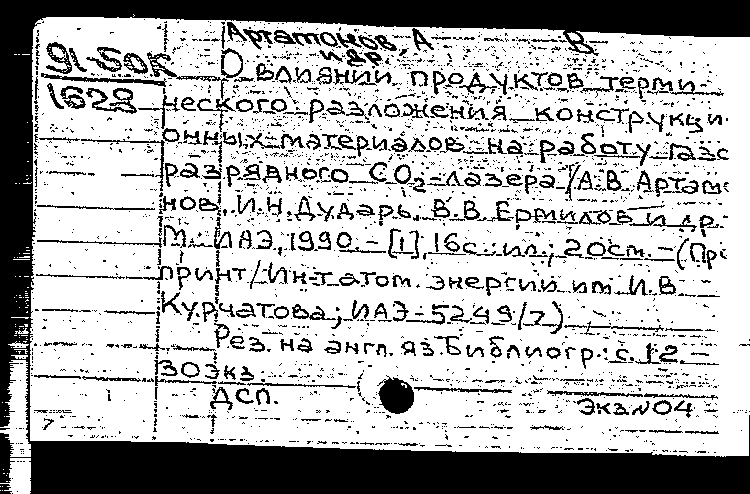 Артамонов, А В
и др.
91-50К
1622
О влиянии продуктов терми-
ческого разложения конструкци
онных материалов на работу газо
разрядного СО₂-лазера /А.В. Артамо
нов, И.Н. Дударь, В.В. Ермилов и др.-
М.: ИАЭ, 1990. - [1], 16с.: ил.; 20см. - (Пре
принт/Ин-т атом. энергии им. И.В.
Курчатова; ИАЭ-5249/7)
Рез. на англ. яз. Библиогр.: с. 12. -
30экз.
ДСП.
Экз.№04
7